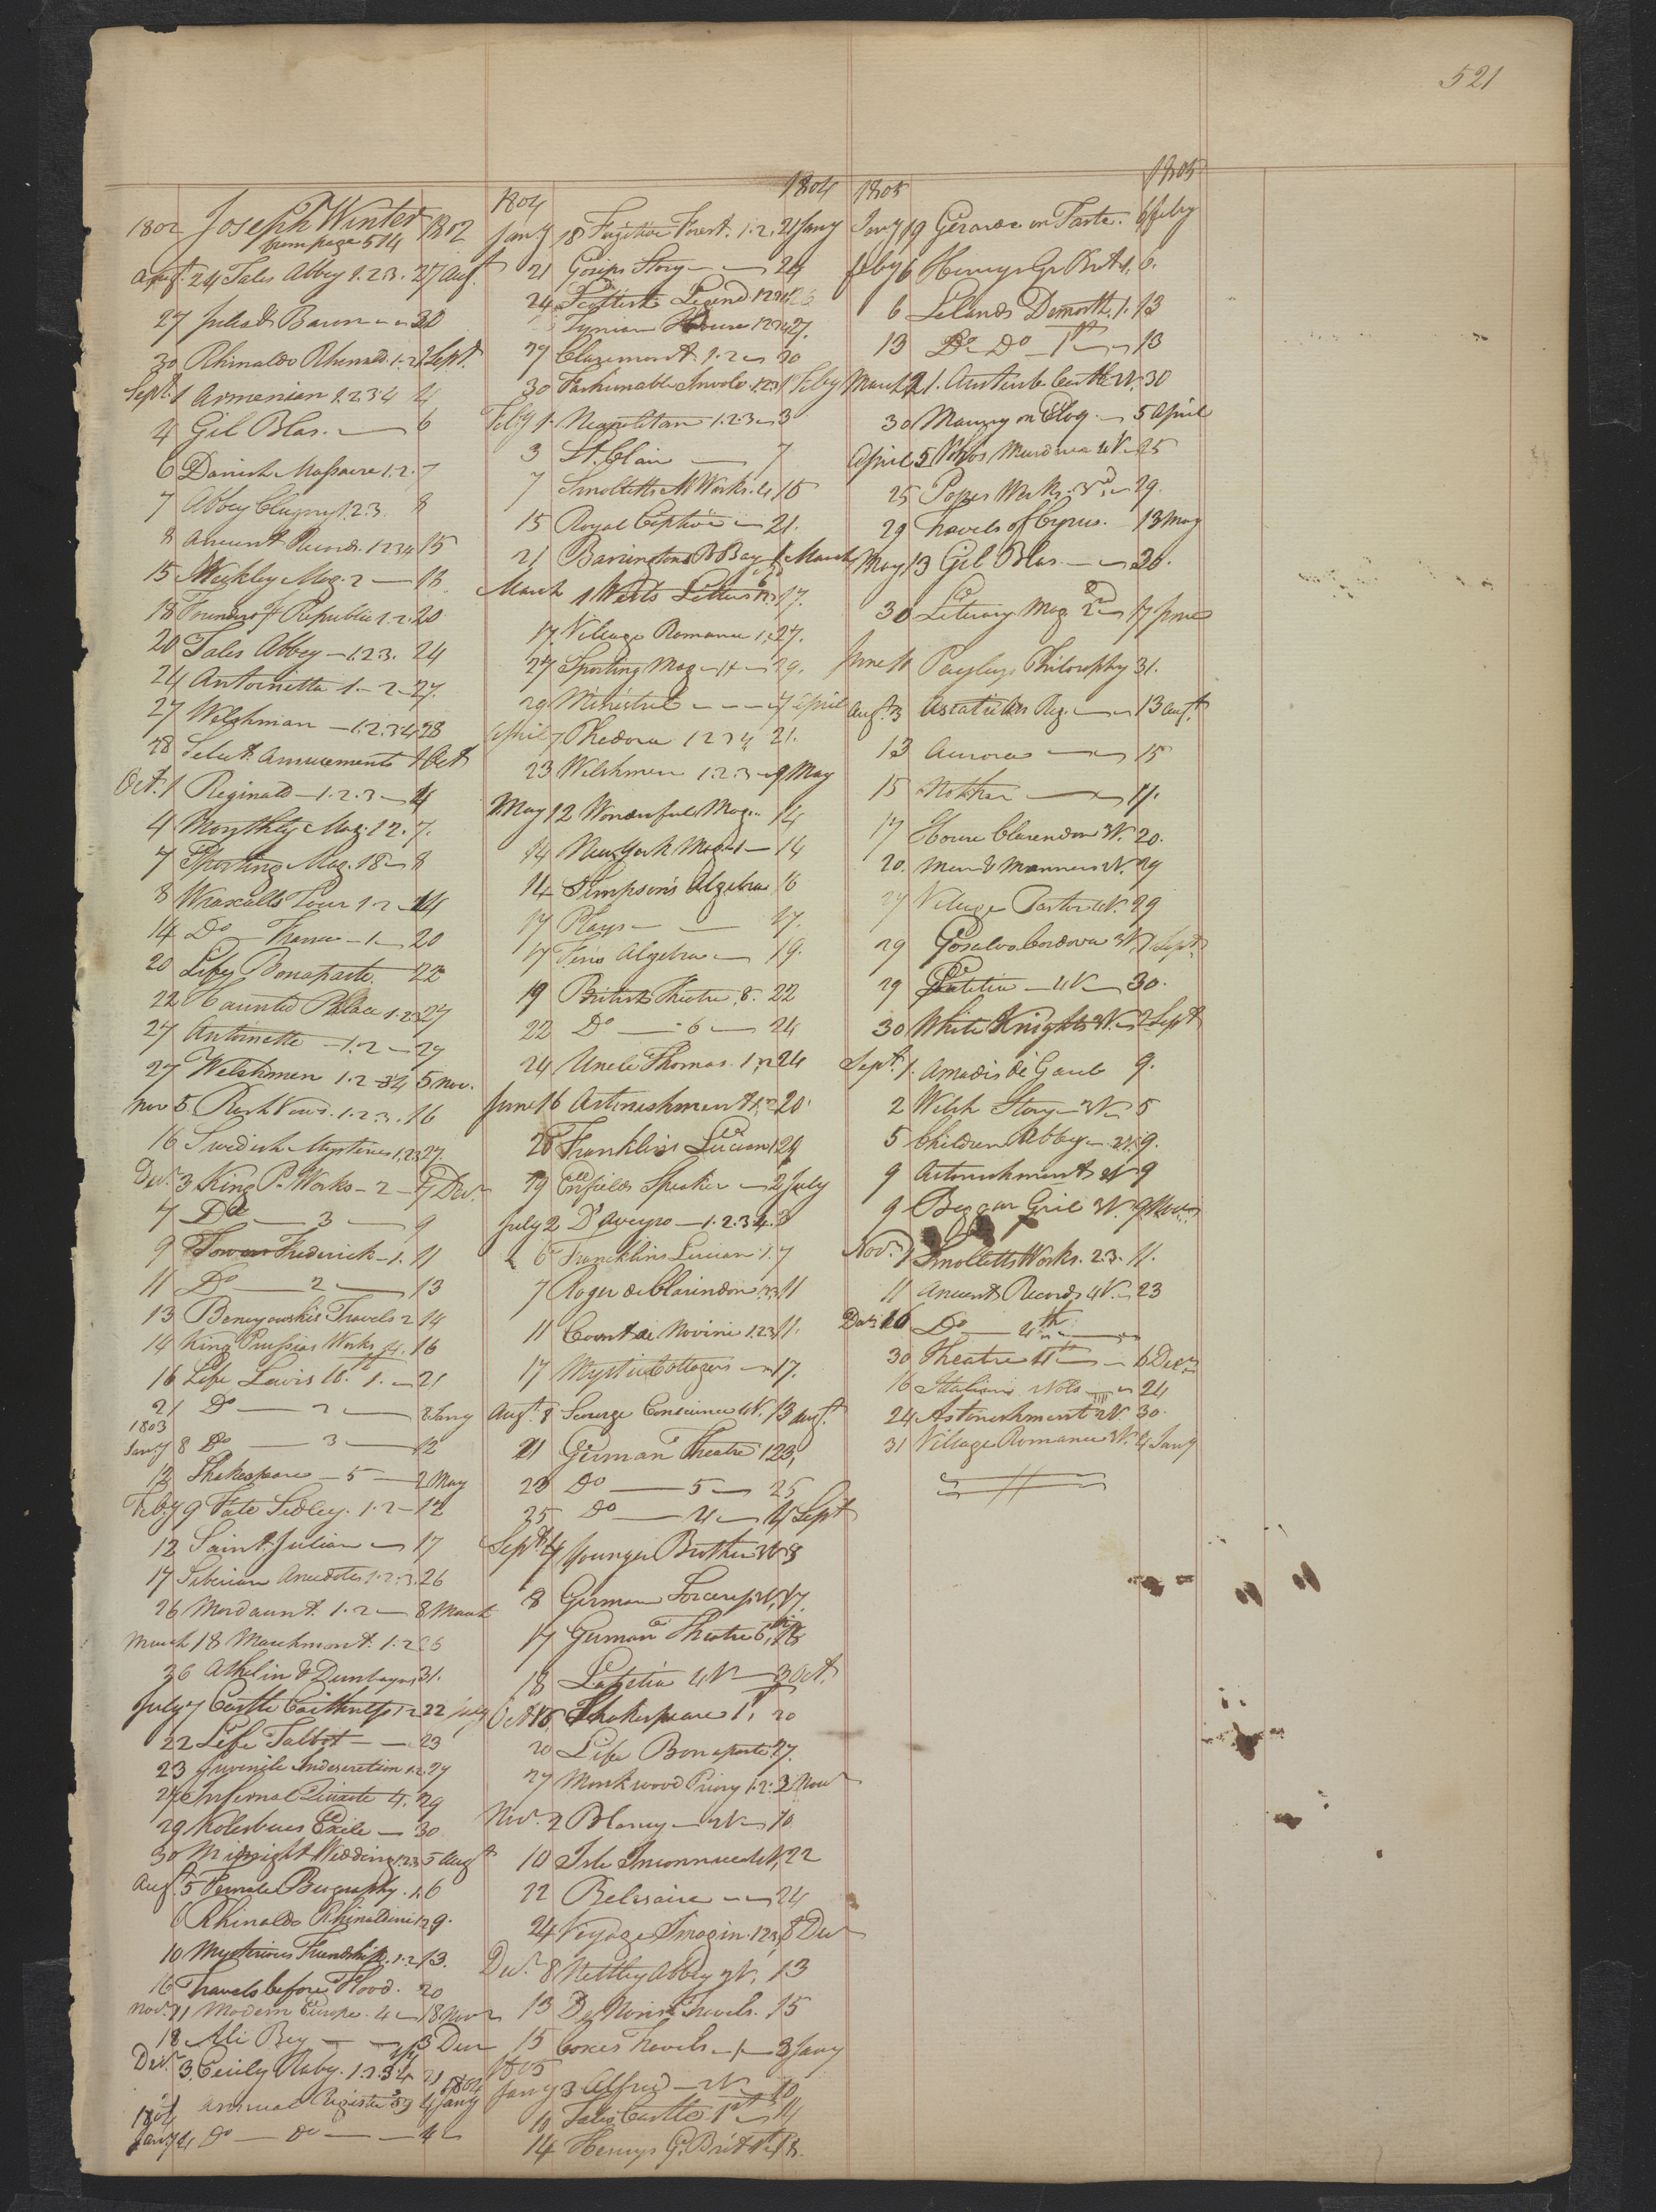 521
1802 Joseph Winter 1802
from page 514
Augt. 24 Tales Abbey 1.2.3. 27 Augt
27 Julia de Baron 30
30 Rhinaldo Rhinald. 1.2. 1 Sept.
Sept. 1 Armenian 1.2.3.4 4
4 Gil Blas. — 6
6 Danish Massacre 1.2. 7
7 Abbey Clugny 1.2.3. 8
8 Ancient Records. 1234 15
15 Weekley Mag. 2 — 18.
18 Founders of Republic 1.2. 20
20 Tales Abbey — 1.2.3. 24
24 Antoinetta 1. — 2 — 27.
27 Welshman — 1.2.3 4 28
28 Select. Amusements 1 Oct
Oct. 1 Reginald — 1.2.3 — 4
4 Monthly Mag. 12. 7.
7 Sporting Mag. 18 — 8
8 Wraxalls Tour 1.2 — 14
14 Do — France — 1 — 20
20 Life Bonaparte. 22
22 Haunted Palace 1.23 27
27 Antoinette — 1.2 — 27
27 Welshmen 1.2 34 5 Nov.
Nov 5. Rash Vows. 1.2.3. 16
16 Swedish Mysteries 1.2.3 27.
Decr. 3 King P. Works — 2 — 7 Decr.
7 Do — 3 — 9
9 Frederick — 1. 11
11 Do — 2 — 13
13 Benyowskis Travels 2 14
14 King Prussias Works 4. 16
16 Life Lewis 16th. 1. — 21
21 Do — 2 — 8 Jany
1803
Jany 8 Do — 3 — 12
12 Shakespeare — 5 — 2 May
Feby 9 Fate Sedley. 1.2 — 12
12 Saint Julian — 17
17 Siberian Anecdotes 1.2.3. 26
26 Mordaunt. 1.2 — 8 March
March 18 Marchmont. 1.2 26
26 Athelin & Dunbayne 31.
July 7 Castle Caithness 1.2 22 July
22 Life Talbot — — 23
23 Juvenile Indiscretion 1.2. 27
27 Infernal Quixote 4. 29
29 Kotesbues Exile — 30
30 Midnight Wedding 1.2.3 5 Augt
Augt. 5 Female Biography. 1. 6
6 Rhinaldo Rhinaldini 1.2 9.
10 Mysterious Friendship. 1.2 13.
16 Travels before Flood. 20
Nov. 11 Modern Europe. 4 — 18 Nov
18 Ali Bey — — 3 Decr
Decr. 3 Cicily Raby. 1.2.3.4 21
1804
Annual Register 4 Jany
1804
Jany 4 Do — Do — — 4
1804 1804
Jany 18 Fugitive Forest. 1.2. 21 Jany
21 Gosips Story — — 24
24 Scottish Legend 1234 26
Tynian House 1234 27.
27 Claremont. 1.2 — 30
30 Fashionable Involv. 1.2.3 1 Feby
Feby 1. Neapolitan 1.2.3 — 3
3 St. Clair — 7
7 Smolletts M Works. 4 15
15 Royal Captive — 21.
21 Barringtons B Bay 1 March
March 1 Werts Letters 17.
17. Village Romance 1, 27.
27 Sporting Mag — 14 — 29.
29 Minstrel — — — 7 April
April 7 Thedora 1 2 3 4 21.
23 Welshmen 1.2.3 — 9 May
May 12 Wonderful Mag. — 14
14 New York Mag — 1 — 14
14 Simpson's Algebra 16
17 Plays — — 17.
17 Algebra — 19.
19 British Theatre. 8. 22
22 Do — 6 — 24
24 Uncle Thomas. 1.2 24
June 16 Astonishment 1.2 20
20 Franklins Lucian 1 29
29 Enfields Speaker — 2 July
July 2 D'Aveyro — 1.2.3 4.
6 Francklins Lucian 1. 7
7 Roger de Clarindon 23 11
11 Count de Novini 1.2.3 11.
17 Mystic Cottagers — 17.
Augt. 8 Scourge Conscience 4V. 13 Augt.
21 German Theatre 1 23,
23 Do — 5 — 25
25 Do — 4 — 4 Sept
Sept 4 Younger Brother 3V. 8
8 German Sorceress. V. 17.
17 German Theatre 6th. 18
18 Letitia 4V — 3 Oct.
Oct 15 Shakespeare 1st, 20
20 Life Bonaparte. 27.
27 Monkwood Priory 1.2. 2 Novr
Nov. 2 Blarney — 2V — 10
10 Isle Inconnue 4V, 22
22 Belisaire — — 24
24 Voyage Imagin. 123, 8 Decr
Decr. 8 Nettley Abbey 2V. 13
13 De Nons Travels. 15
15 Coxes Travels — 1 — 3 Jany
1805
Jany 3 Alfred — 2V — 10
10 Tales Castle 1st — 14
14 Henrys G. Brit 1st 18.
1805 1805
Jany 19 Gerarde on Taste. 6 Feby
Feby 6 Henrys Gr. Brit 1. 6.
6 Lelands Demosth. 1. 13
13 Do — Do — 1st — 13
March 21. Austenb. Castle 2V. 30
30 Maury on Eloq. — 5 April
April 5 4V — 25
25 Popes Works. 3d, — 29.
29 Travels of Cyrus. 13 May
May 13 Gil Blas. — — 20.
30 Literary Mag 2d — 17 June
June 11 Payleys Philosophy 31.
Augt. 3 Asiatic An Reg. — — 13 Augt.
13 Aurora — — 15
15 — 17.
17 House Clarendon 3V. 20.
20. Men & Manners 4V. 29
27 Village Pastor 4V. 29
29 Gosalvo Cordova 3V. 1 Sept
29 Letitia — 4V — 30.
30 White Knights 3V. — 2 Sept
Sept. 1. Amadis de Gaul 9.
2 Welch Story — 3V — 5
5 Children Abbey — 2V. 9.
9 Astonishment 2V 9
9 Beggar Girl 3V.
Nov. 1 Smolletts Works. 2.3. 11.
11 Ancient Records 4V. — 23
Do — 4th —
30 Theatre 11th — 6 Decr
16 Italian Vols — 24
24 Astonishment 2V. 30.
31 Village Romance 3V. 4 Jany